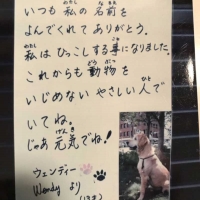 いつも 私の 名前を
よんでくれて ありがとう。
私は ひっこしする事になりました。
これからも 動物を
いじめない やさしい 人で
いてね。
じゃあ 元気でね!
ウェンディー
Wendy より
(13才)